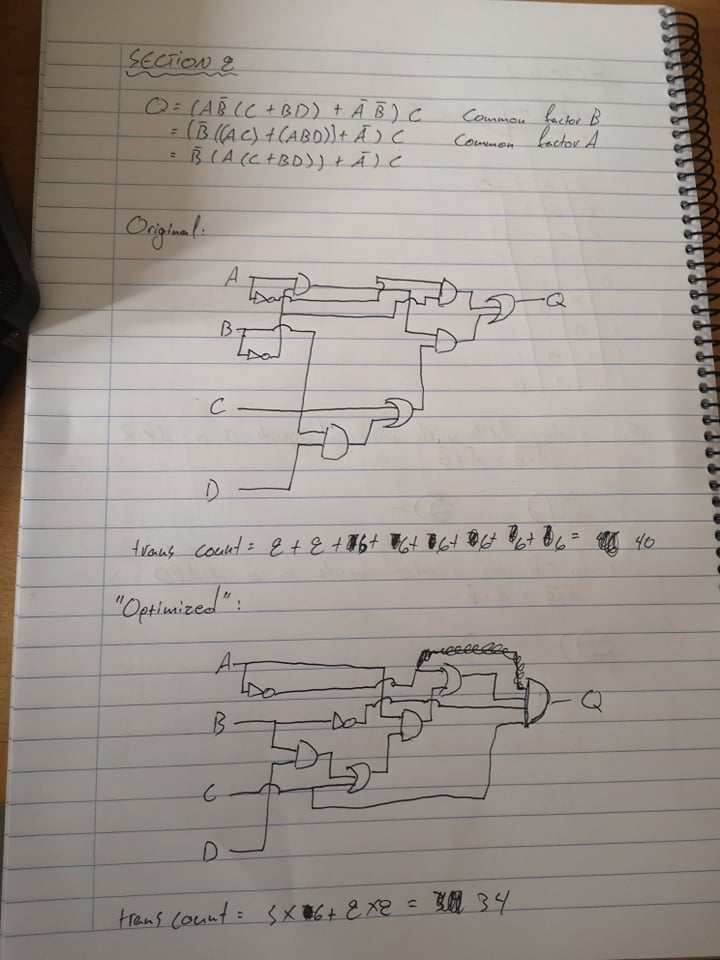 SECTION 2
Q = (AB̄(C + BD) + Ā B̄) C Common factor B
= (B̄((AC) + (ABD)) + Ā) C Common factor A
= B̄ (A (C + BD)) + Ā) C
Original:
A
Q
B
C
D
trans count = 2 + 2 + 6 + 6 + 6 + 6 + 6 + 6 = 40
"Optimized":
A
B
Q
C
D
trans count = 5 x 6 + 2 x 2 = 34